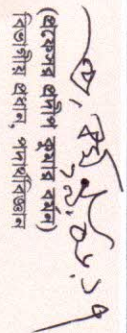 (প্রফেসর প্রদীপ কুমার বর্মন)
বিভাগীয় প্রধান, পদার্থবিজ্ঞান